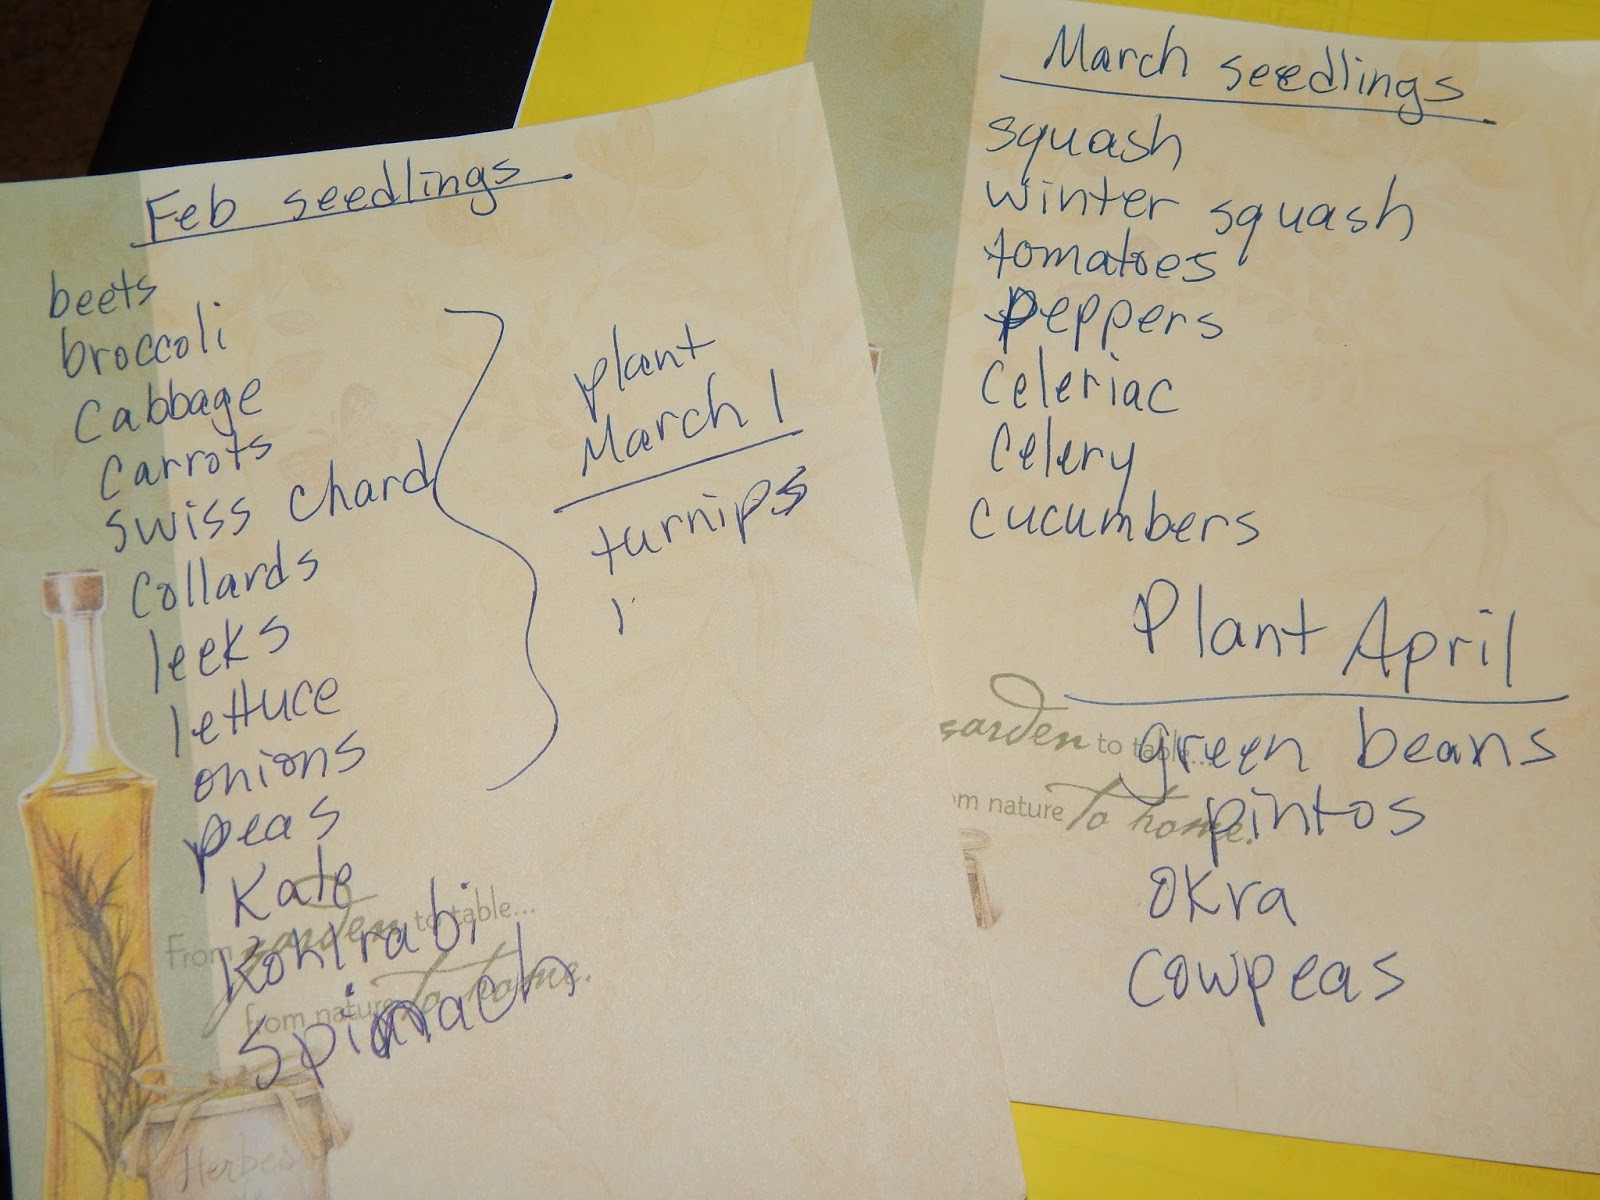 Feb seedlings
beets
broccoli
Cabbage
Carrots
Swiss Chard
Collards
leeks
lettuce
onions
peas
Kale
Kohlrabi
Spinach
plant
March 1
turnips
From garden to table...
from nature to home.
Herbes
March seedlings
squash
winter squash
tomatoes
Peppers
Celeriac
Celery
cucumbers
Plant April
green beans
pintos
okra
Cowpeas
garden to table...
om nature To home.